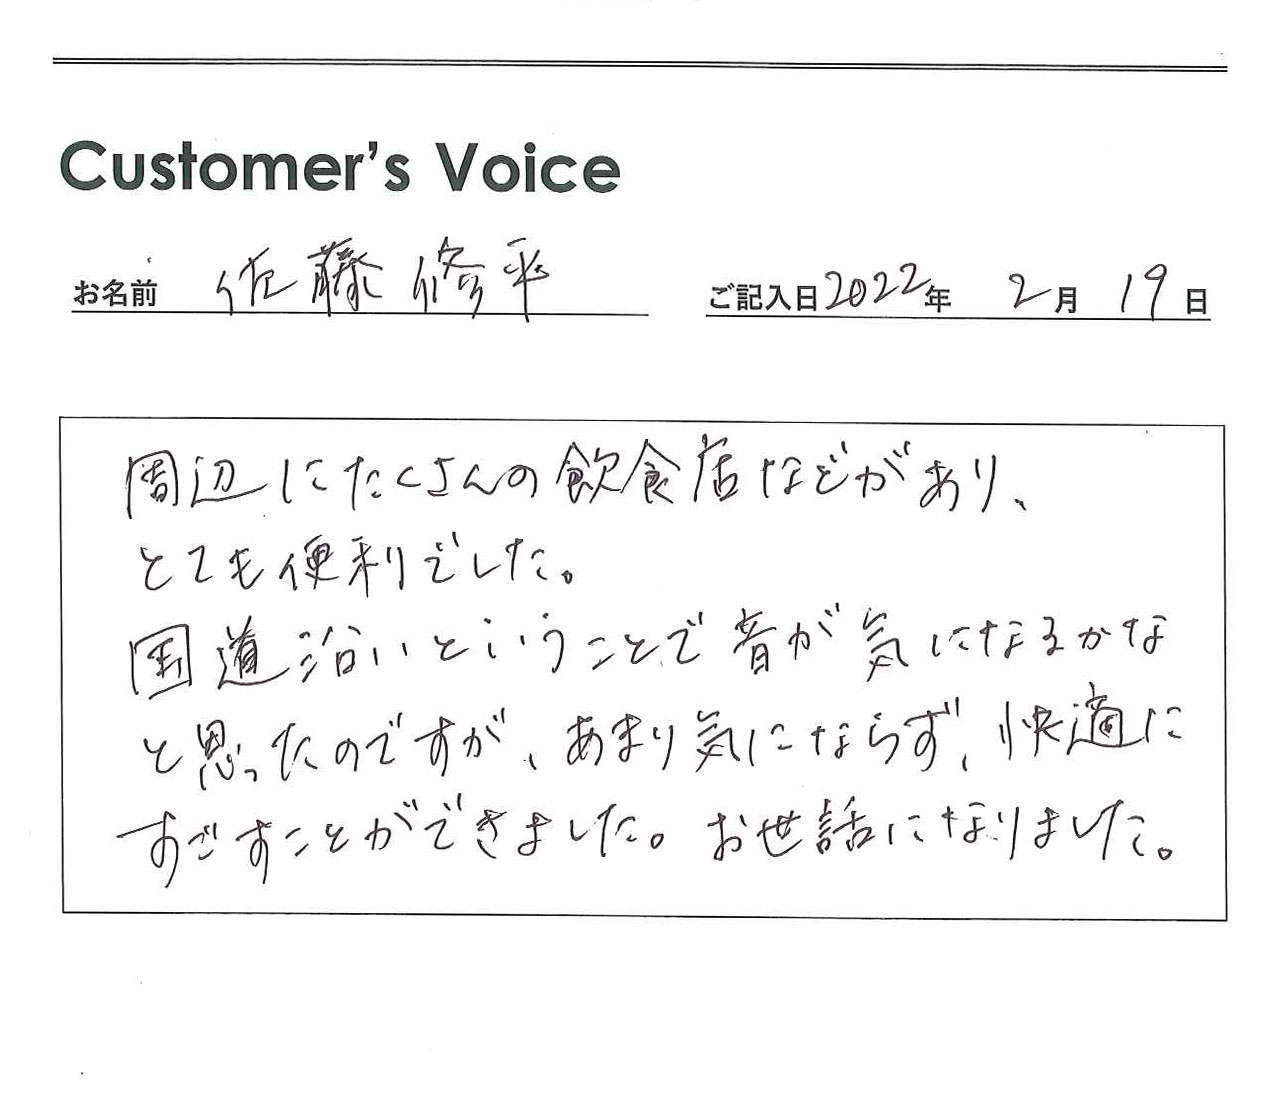 Customer's Voice
お名前 佐藤修平 ご記入日2022年 2月 19日
周辺にたくさんの飲食店などがあり、
とても便利でした。
国道沿いということで音が気になるかな
と思ったのですが、あまり気にならず、快適に
すごすことができました。お世話になりました。